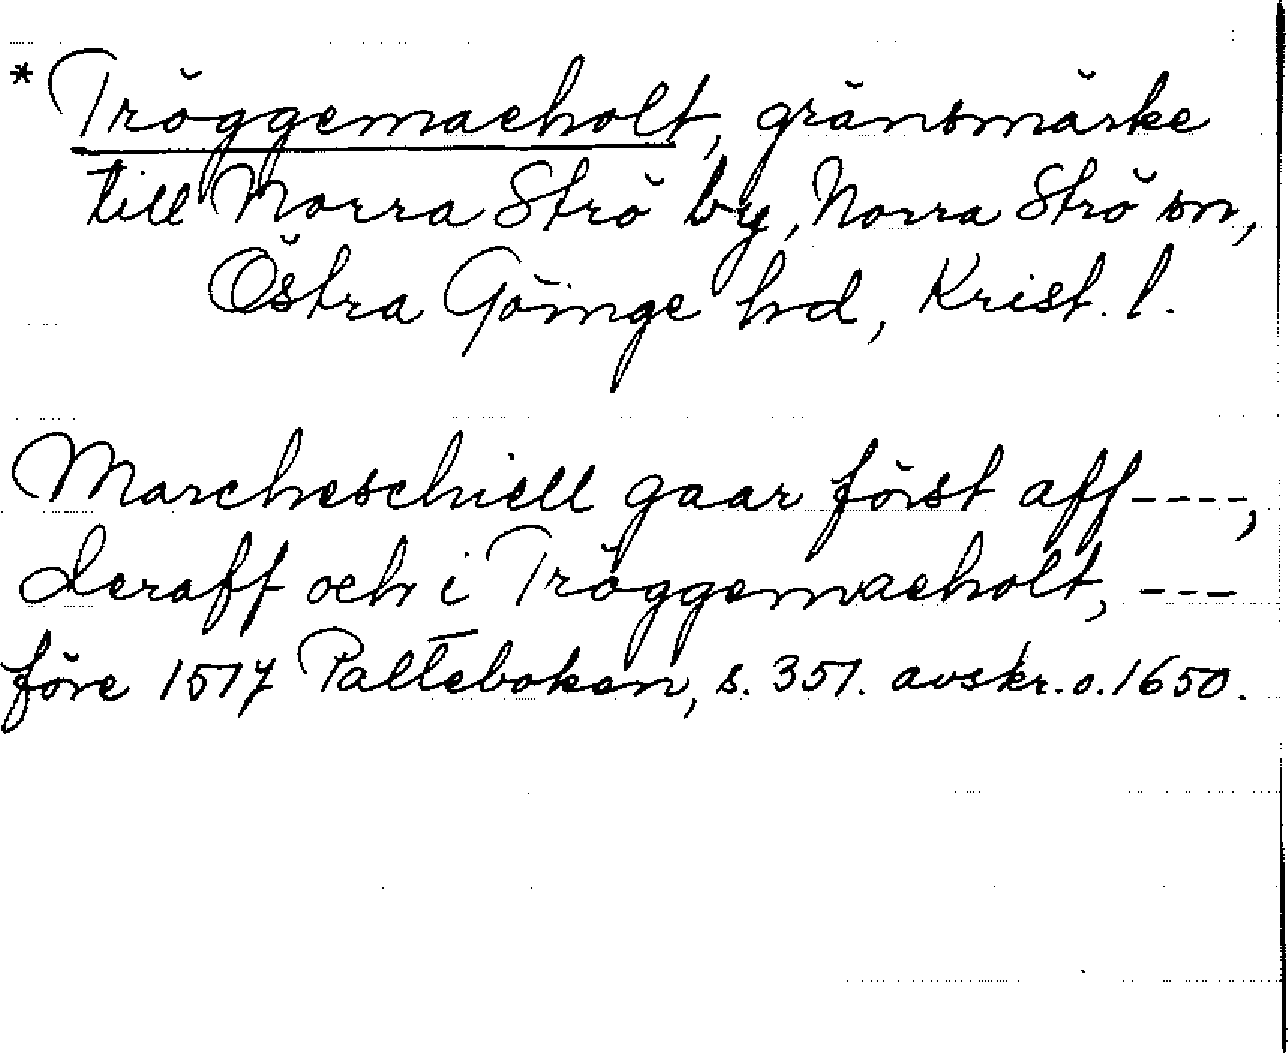 * Tröggemaeholt, gränsmärke
till Norra Strö by, Norra Strö sn,
Östra Göinge hd, Krist. l.
Marcheschiell gaar först aff----,
deraff och i Tröggemaeholt, ---
före 1517 Palteboken, s. 351. avskr. o. 1650.